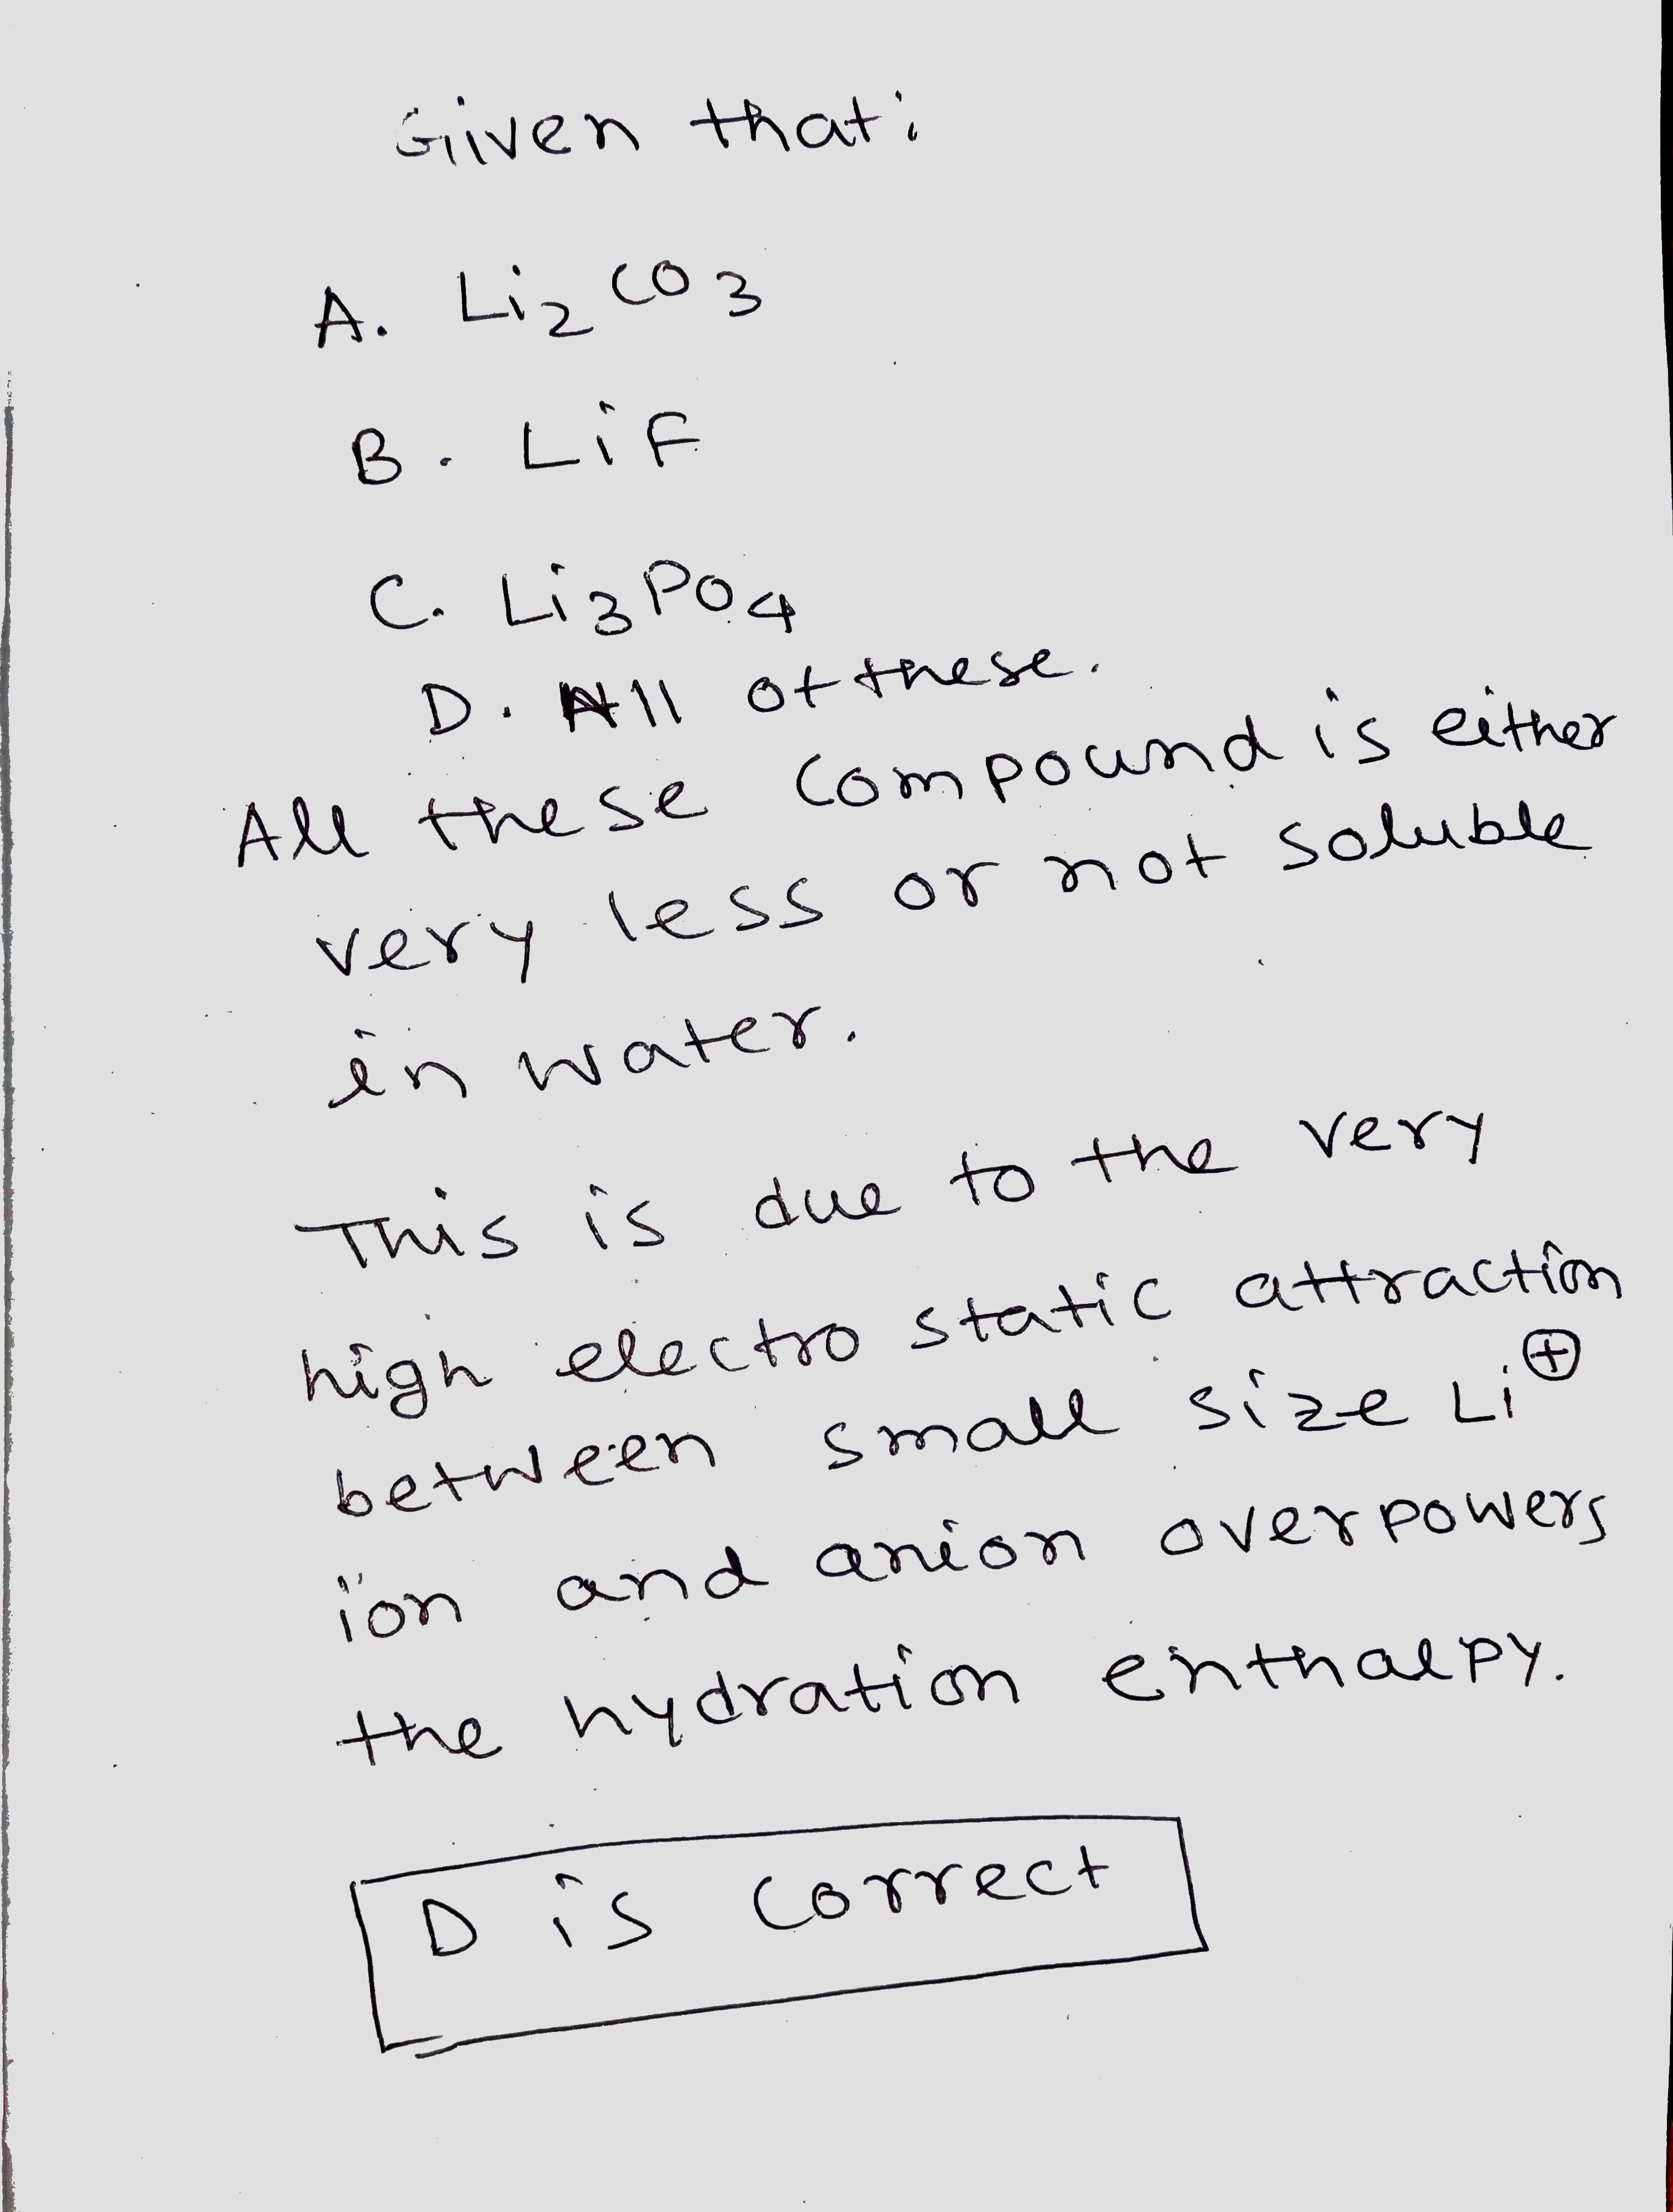 Given that:
A. Li2CO3
B. LiF
C. Li3PO4
D. All of these.
All these compound is either
very less or not soluble
in water.
This is due to the very
high electro static attraction
between small size Li⊕
ion and anion overpowers
the hydration enthalpy.
D is correct